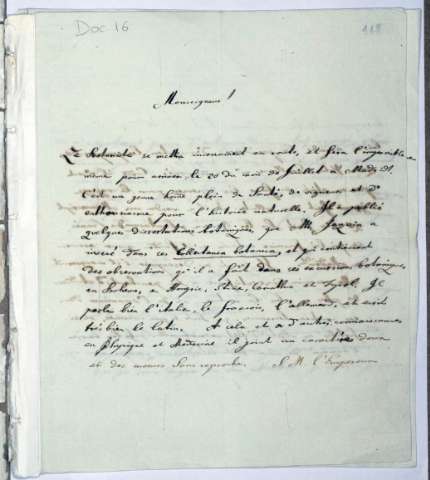 Doc. 16
118
Monseigneur!
Le Botaniste se mettra incessament en route, et fera l'impossible
même pour arriver le 20 du mois de Juillet a
C'est un jeune homme plein de Santé, de vigueur et d'
enthousiasme pour l'histoire naturelle. Il a publié
quelques dissertations botaniques que Mr. Jacquin a
inseré dans ses Collectanea botanica, et qui contiennent
des observations qu'il a fait dans ses excursions botaniques
en Boheme, a Hongrie, Stirie, Carinthie et Tyrol. Il
parle bien l'Italien, le francois, l'allemand, et ecrit
très bien le latin. A cela et a d'autres connoissances
en Physique et Medecine il joint un caractère doux
et des moeurs sans reproche. S. M. l'Empereur